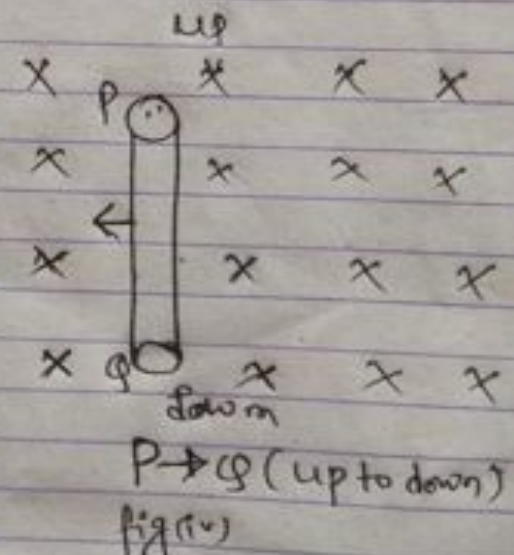 up
x x x x
P
x x x x
x x x x
x Q x x x
down
P→Q (up to down)
fig(iv)